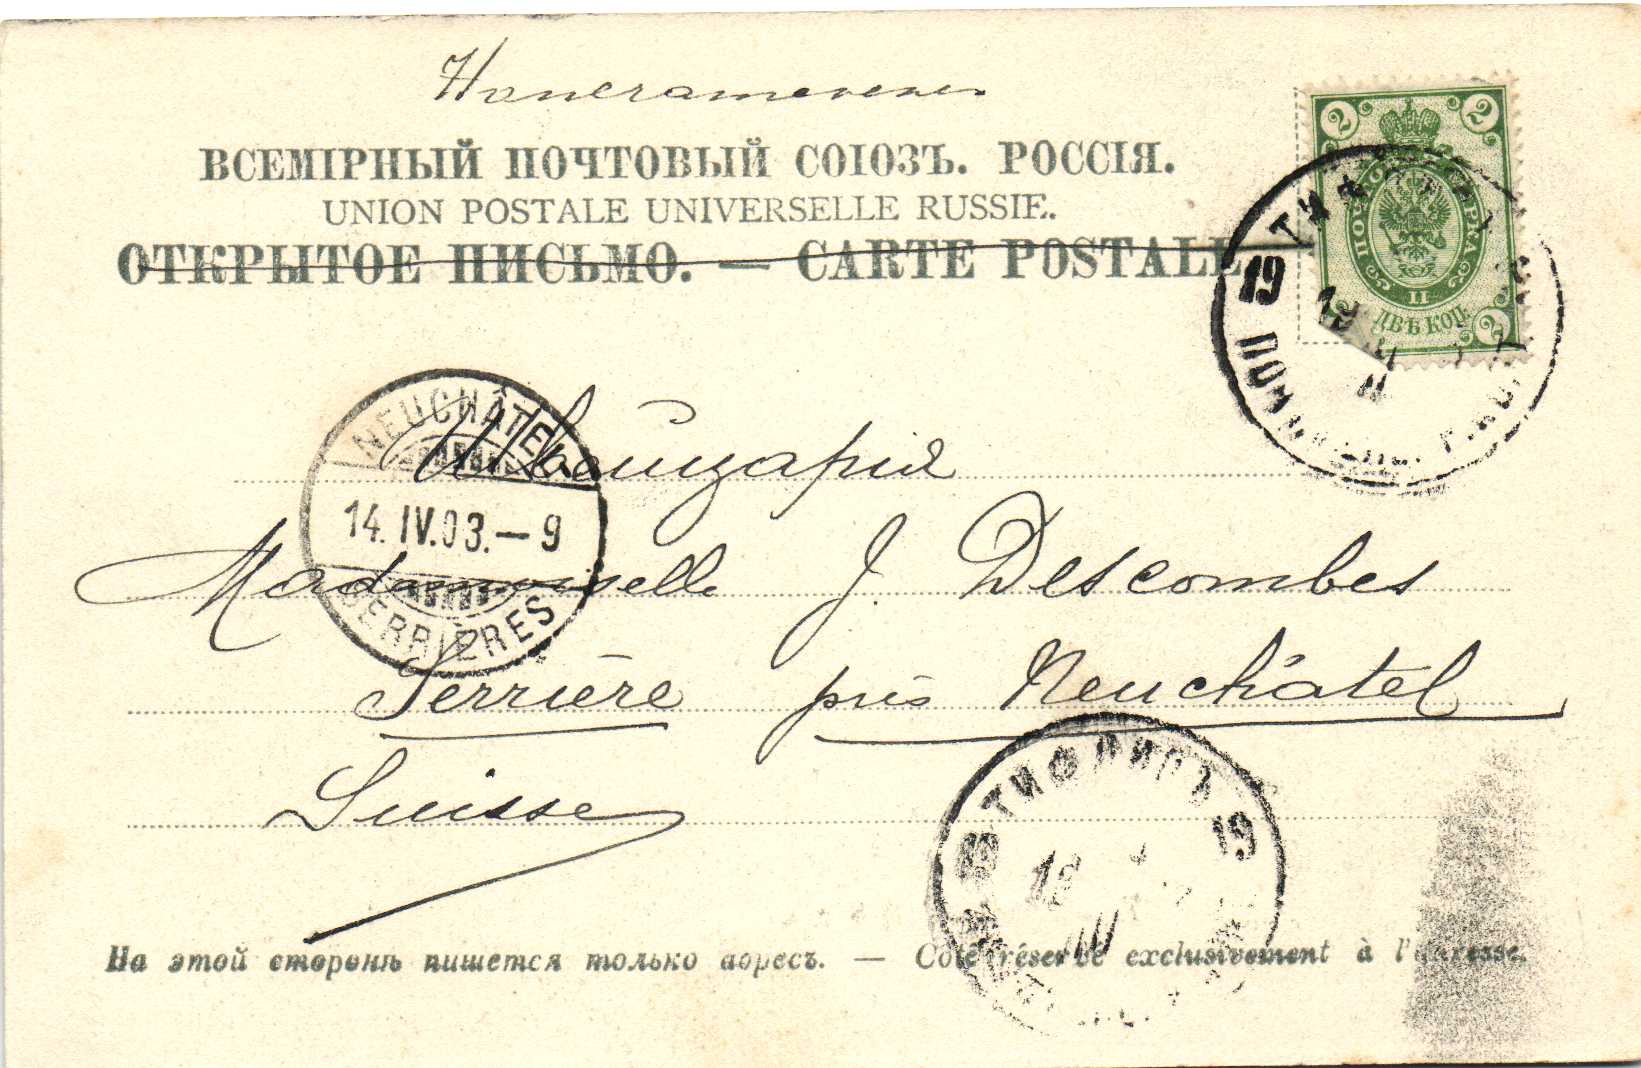 ВСЕМІРНЫЙ ПОЧТОВЫЙ СОЮЗЪ. РОССІЯ.
UNION POSTALE UNIVERSELLE RUSSIE.
ОТКРЫТОЕ ПИСЬМО. — CARTE POSTALE
2 2
ПОЧТОВАЯ МАРКА
II
ДВѢ КОП.
2 2
ТИФЛИСЪ
19
18
III
NEUCHÂTEL
14. IV. 03. — 9
SERRIÈRES
Швейцарія
Mademoiselle J. Descombes
Serrière près Neuchâtel
Suisse
ТИФЛИСЪ
19
18
III
На этой сторонѣ пишется только адресъ. — Côté réservé exclusivement à l'adresse.